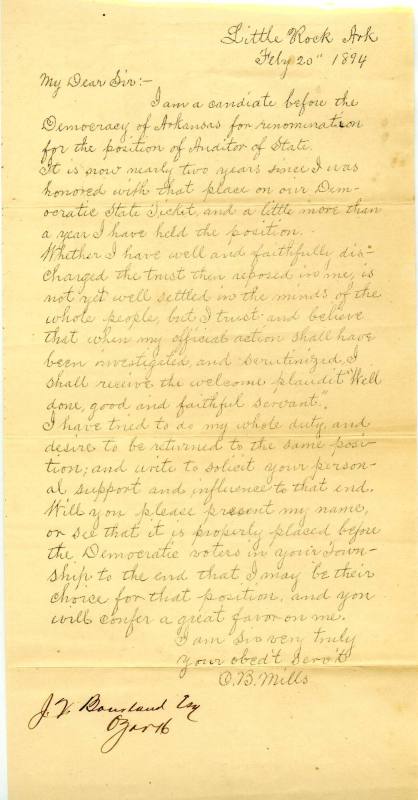 Little Rock Ark
Feby 20" 1894
My Dear Sir:-
I am a candiate before the
Democracy of Arkansas for renomination
for the position of Auditor of State.
It is now nearly two years since I was
honored with that place on our Dem-
ocratic State Ticket, and a little more than
a year I have held the position.
Whether I have well and faithfully dis-
charged the trust then reposed in me, is
not yet well settled in the minds of the
whole people, but I trust and believe
that when my official action shall have
been investigated, and scrutinized, I
shall receive the welcome plaudit "Well
done, good and faithful servant".
I have tried to do my whole duty, and
desire to be returned to the same posi-
tion; and write to solicit your person-
al support and influence to that end.
Will you please present my name,
or see that it is properly placed before
the Democratic voters in your Town-
ship to the end that I may be their
choice for that position, and you
will confer a great favor on me.
I am Sir very truly
your obed't Serv't
C. B. Mills
J. V. Bourland Esq
Ozark